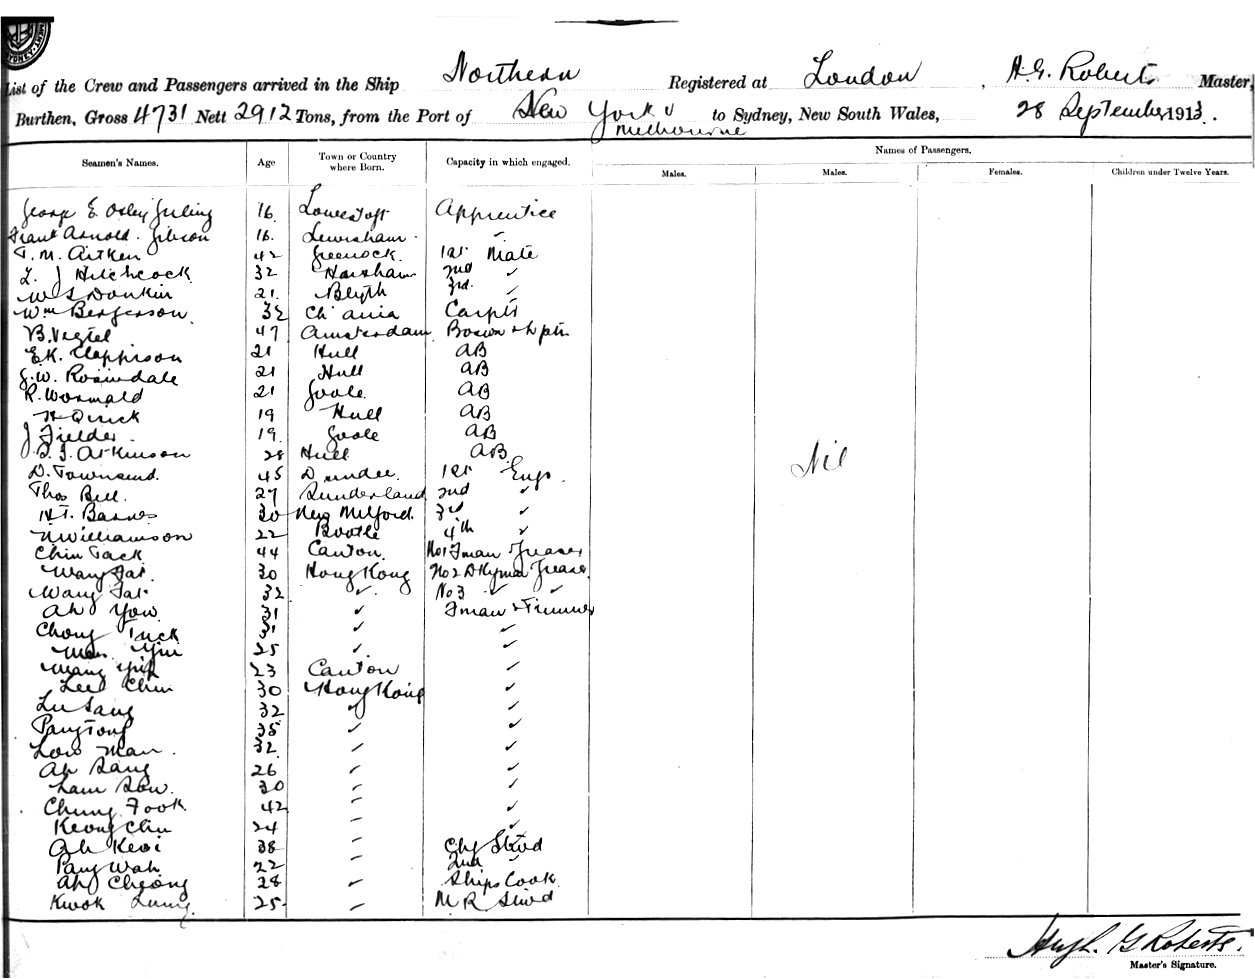 SYDNEY
List of the Crew and Passengers arrived in the Ship Northern Registered at London, H.G. Roberts Master,
Burthen, Gross 4731 Nett 2912 Tons, from the Port of New York & Melbourne to Sydney, New South Wales, 28 September 1913.
Seamen's Names. Age Town or Country where Born. Capacity in which engaged. Names of Passengers.
Males. Males. Females. Children under Twelve Years.
George E Oxley Juling 16 Lowestoft Apprentice
Frank Arnold Gibson 16 Lewisham ✓
T. M. Aitken 42 Greenock 1st Mate
L. J Hitchcock 32 Horsham 2nd ✓
W S Donkin 21 Blyth 3rd ✓
Wm Bergerson 32 Ch'ania Carptr
B. Vegtel 47 Amsterdam Bosun & Lptr
E.K. Clappison 21 Hull AB
G.W. Rosindale 21 Hull AB
R. Wormald 21 Goole AB
H Quick 19 Hull AB
J Fielder 19 Goole AB
J. Atkinson 28 Hull AB
Nil
D. Townsend 45 Dundee 1st Engr.
Thos Bell 27 Sunderland 2nd ✓
H.T. Barnes 30 New Milford 3rd ✓
N Williamson 22 Bootle 4th ✓
Chin Tack 44 Canton No 1 Fman Greaser
Wang Fat 30 Hong Kong No 2 Dkyman Greaser
Wang Fat 32 ✓ No 3 ✓ ✓
Ah You 31 ✓ Fman & Trimmer
Chong Tuck 31 ✓ ✓
Man Yiu 25 ✓ ✓
Wang Yik 23 Canton ✓
Lee Chin 30 Hong Kong ✓
Lu Sang 32 ✓ ✓
Pang Tong 35 ✓ ✓
Low Man 32 ✓ ✓
Ah Sang 26 ✓ ✓
Lam Sow 30 ✓ ✓
Chung Fook 42 ✓ ✓
Keong Chu 24 ✓ ✓
Ah Keoi 38 ✓ Chf Stwd
Pang Wah 22 ✓ 2nd ✓
Ah Cheong 28 ✓ Ships Cook
Kwok Lung 25 ✓ M R Stwd
Hugh. G Roberts.
Master's Signature.